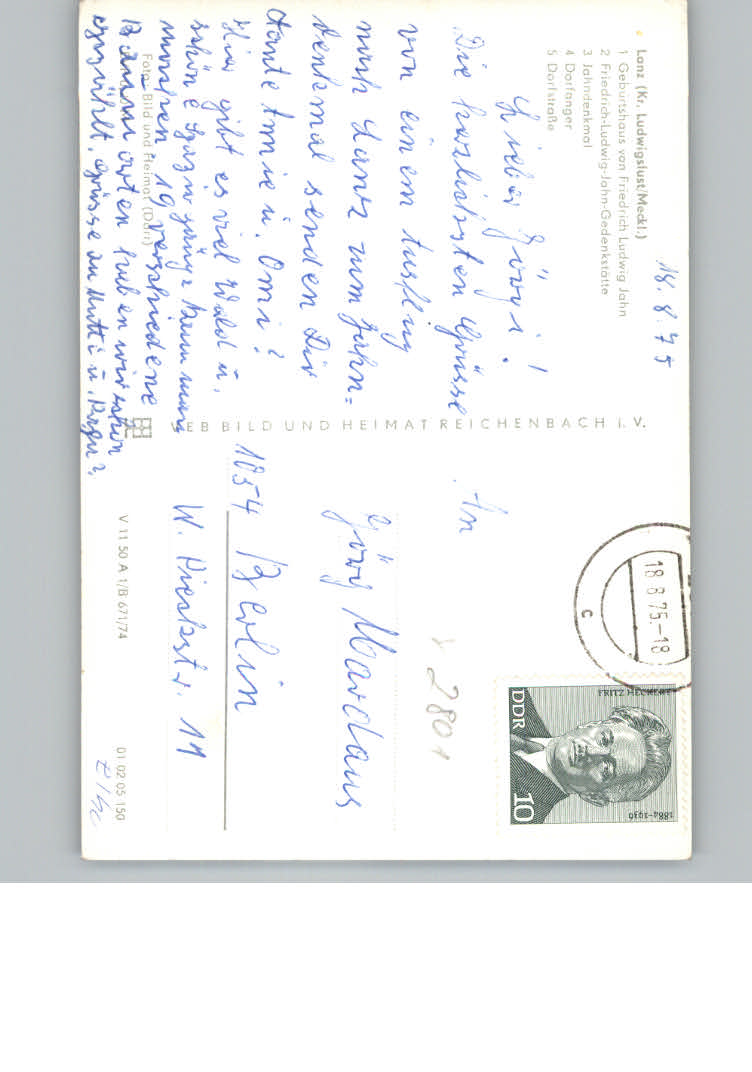 Lanz (Kr. Ludwigslust/Meckl.)
1 Geburtshaus von Friedrich Ludwig Jahn
2 Friedrich-Ludwig-Jahn-Gedenkstätte
3 Jahndenkmal
4 Dorfanger
5 Dorfstraße
18.8.75
Lieber Görgi!
Die herlichsten Grüsse
von einem Ausflug
nach Lanz zum Jahn=
denkmal senden Dir
Tante Annie u. Omi?
Hier gibt es viel Wald u.
schöne kann man
machen? 19 verschiedene
Baumarten haben wir schon
gezählt. Grüsse an Mutti u.
Foto: Bild und Heimat (Darr)
VEB BILD UND HEIMAT REICHENBACH i. V.
An
Görg
1054 Berlin
W. Pieckstr. 11
2801
V 11 50 A 1/B 671/74
01 02 05 150
18.8.75.-18
c
FRITZ HECKERT
1884-1936
DDR
10